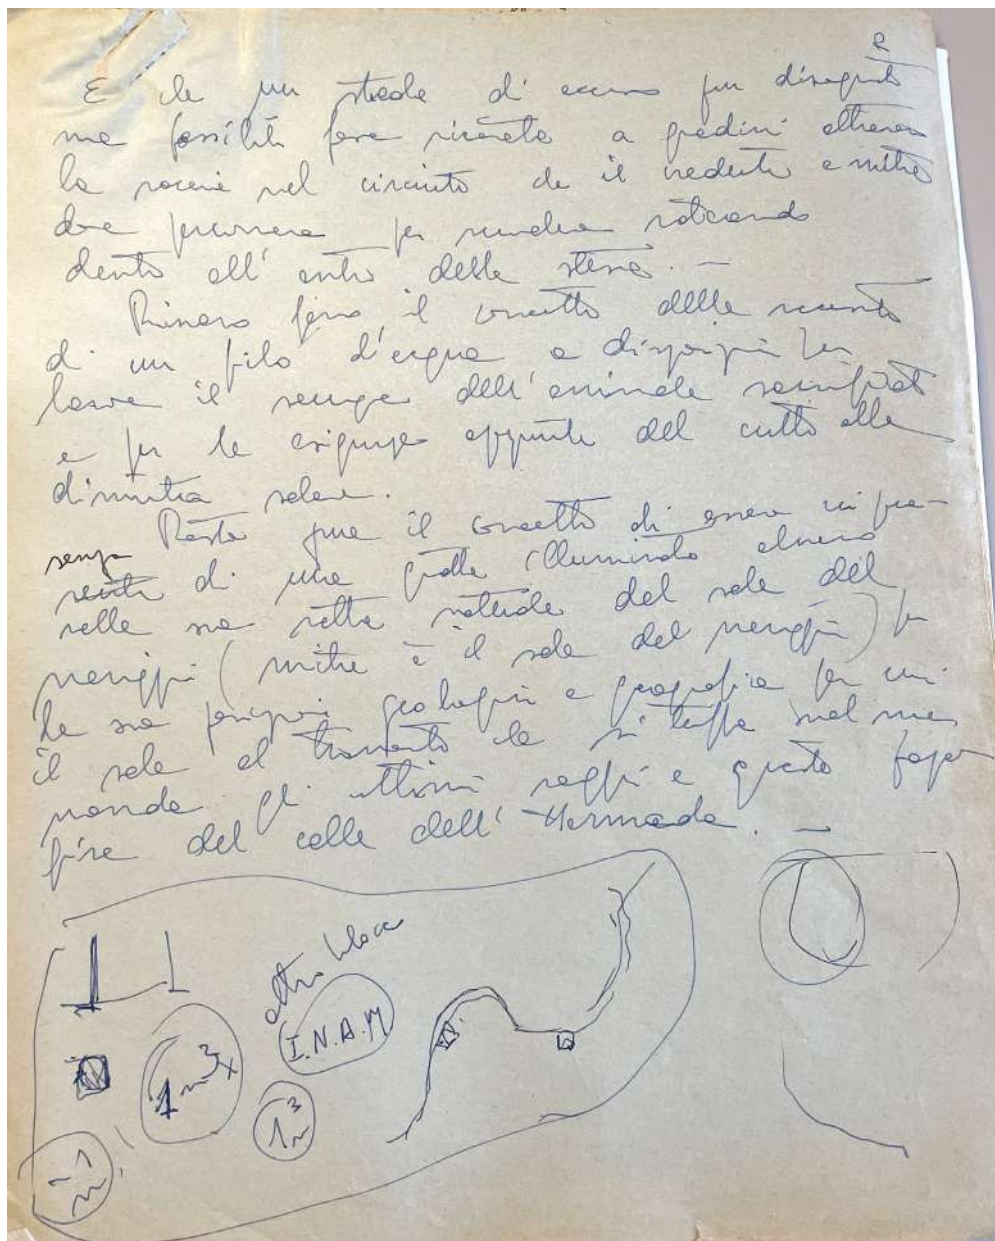 e
E che un strada di accesso fu disegnata
ma possibile fare ricavata a gradini attraverso
la roccia nel circuito che il credente e mitra
deve percorrere per scendere
dentro all'antro della stessa. —
Rimane fermo il concetto della
di un filo d'acqua a disposizione per
lavare il sangue dell'animale sacrificato
e per le esigenze appunto del culto alla
divinità solare.
Resta pure il concetto di essere in pre-
senza
di una grotta illuminata almeno
nella sua naturale del sole del
meriggio (mitra è il sole del meriggio) per
la sua posizione geologica e geografica per cui
il sole al tramonto che si tuffa nel mare
manda gli ultimi raggi e questo
fine del colle dell'Hermada. —
altro blocco
I.N.A.M
1 m³ x
1 m³
1 m